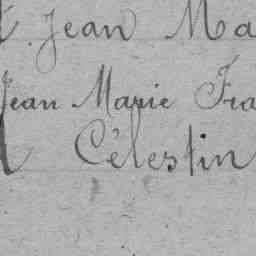 Jean Ma
Jean Marie Fra
Célestin